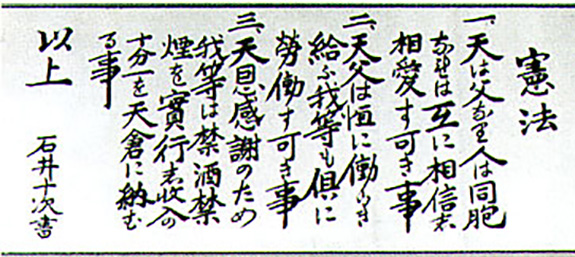 憲法
一、天は父なり人は同胞
なれは互に相信し
相愛す可き事
二、天父は恒に働らき
給ふ我等も倶に
勞働す可き事
三、天恩感謝のため
我等は禁酒禁
煙を實行し收入の
十分一を天倉に納む
る事
以上
石井十次書